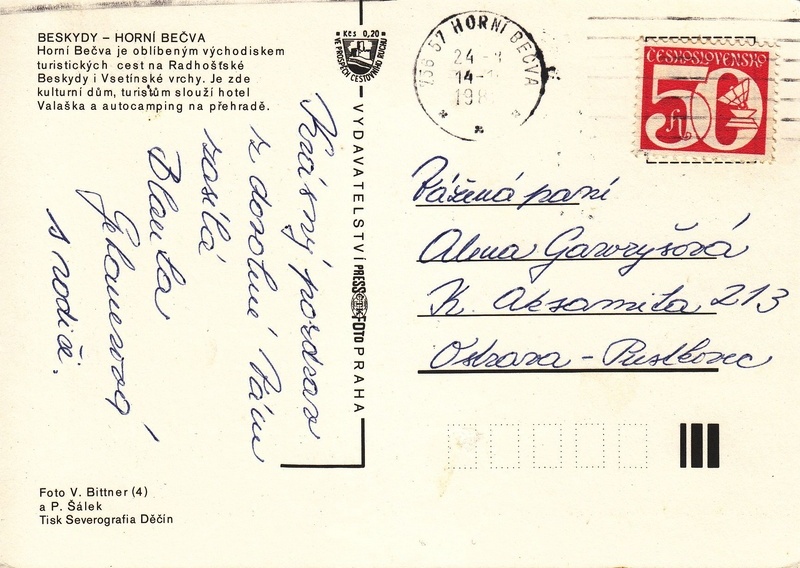 BESKYDY – HORNÍ BEČVA
Horní Bečva je oblíbeným východiskem
turistických cest na Radhošťské
Beskydy i Vsetínské vrchy. Je zde
kulturní dům, turistům slouží hotel
Valaška a autocamping na přehradě.
Kčs 0,20
VE PROSPĚCH CESTOVNÍHO RUCHU
756 57 HORNÍ BEČVA
24
14
198
ČESKOSLOVENSKO
50
Krásný pozdrav
z dovolené Vám
zasílá
Blanka
s rodiči.
VYDAVATELSTVÍ PRESSFOTO PRAHA
Vážená paní
Alena Gavryšová
K. Aksamita 213
Ostrava - Pustkovec
Foto V. Bittner (4)
a P. Šálek
Tisk Severografia Děčín